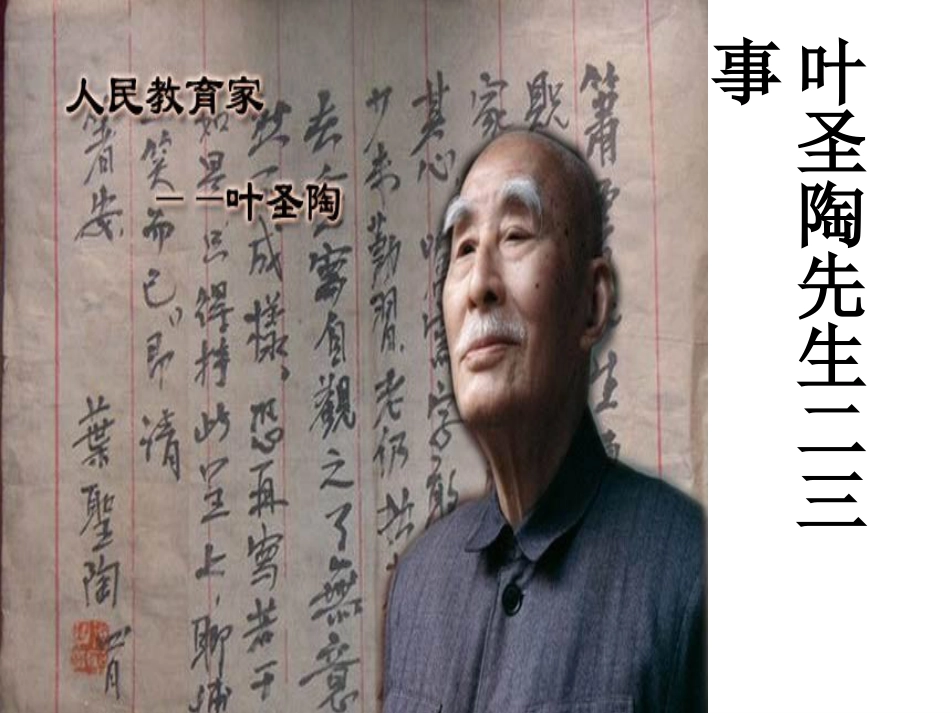 叶圣陶先生二三
事
人民教育家
——叶圣陶
生
家
其心
字
少未勤習,老仍
寫自觀之了無意
成樣。恐再寫若干
如是只得持此呈上,聊
一笑而已。即請
著安
葉聖陶